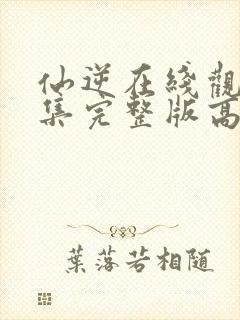 仙逆在线觀
集完整版高
葉落若相随